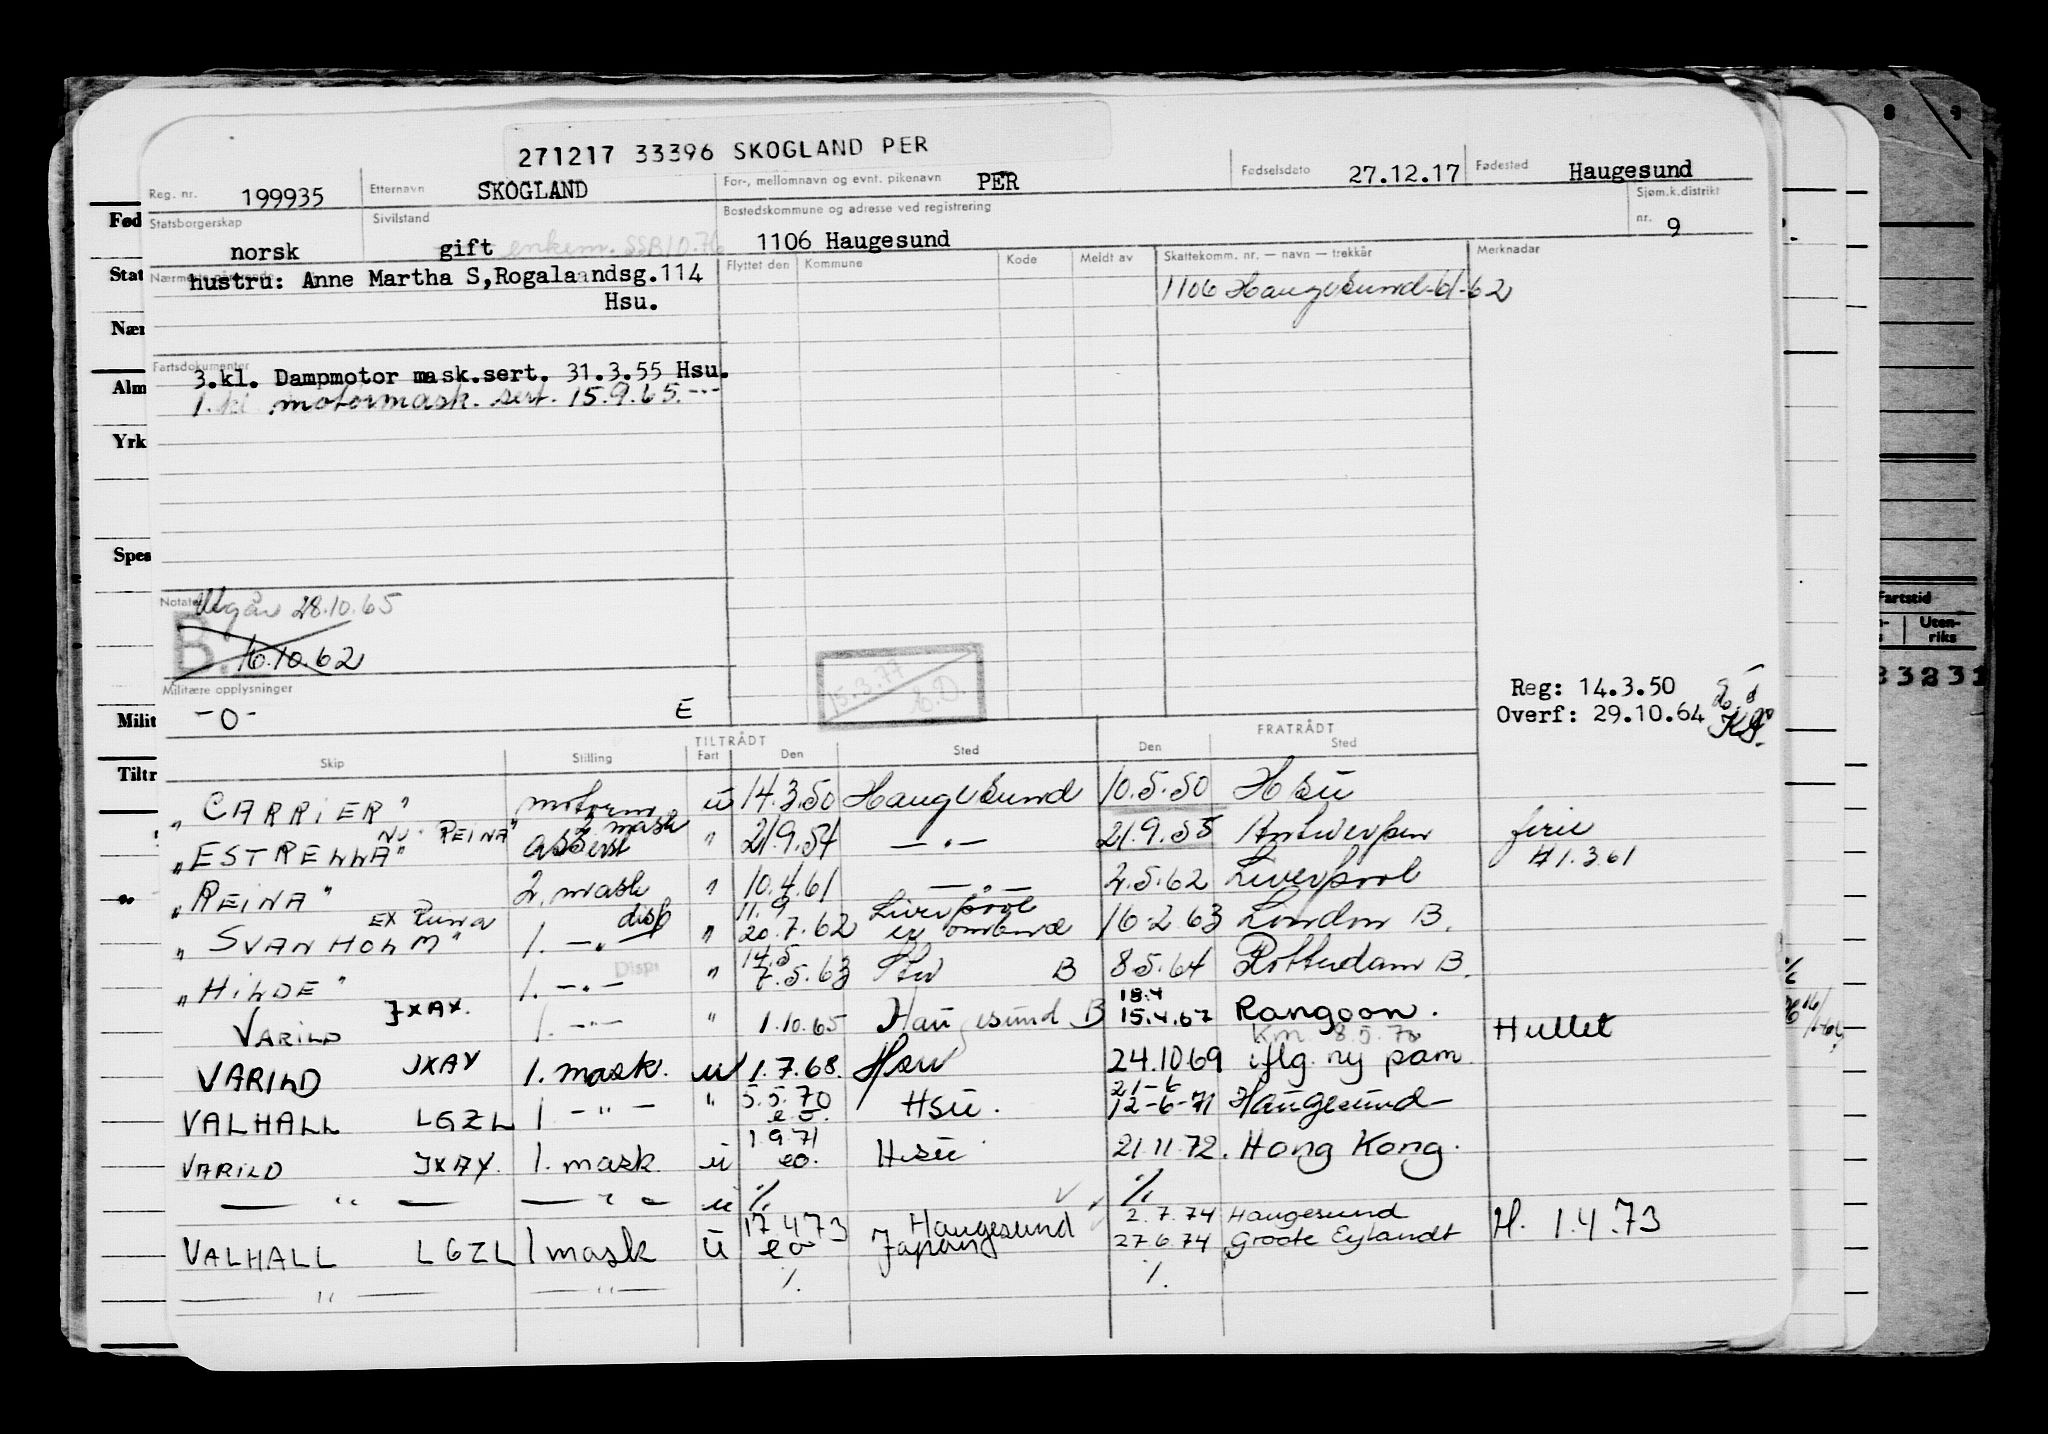 271217 33396 SKOGLAND PER
Reg. nr. 199935 Etternavn SKOGLAND For-, mellomnavn og evnt. pikenavn PER Fødselsdato 27.12.17 Fødested Haugesund
Statsborgerskap norsk Sivilstand gift enkem. SSB10.76 Bostedskommune og adresse ved registrering 1106 Haugesund Sjøm.k.distrikt nr. 9
Nærmeste pårørende Flyttet den Kommune Kode Meldt av Skattekomm. nr. — navn — trekkår Merknader
hustru: Anne Martha S, Rogalaandsg.114
Hsu.
1106 Haugesund-61-62
Fartsdokumenter
3.kl. Dampmotor mask.sert. 31.3.55 Hsu.
1. kl. motormask. sert. 15.9.65. -"-
Notater Utgår 28.10.65
B. 16.10.62
15.3.77
Militære opplysninger
-0- E
Reg: 14.3.50
Overf: 29.10.64
TILTRÅDT FRATRÅDT
Skip Stilling Fart Den Sted Den Sted
"CARRIER" motorm u 14.3.50 Haugesund 10.5.50 Hsu
NU REINA"
"ESTRELLA" assist 2 mask " 21.9.54 — " — 21.9.55 Antwerpen ferie
H 1.3.61
"REINA" 2. mask " 10.4.61 — " — 2.5.62 Liverpool
ex Runa disp 11.9 Liverpool
"SVANHOLM" 1. — " — " 20.7.62 er ombord 16-2.63 London B.
Disp 14.5
"HILDE" 1. — " — " 7.5.63 B 8.5.64 Rotterdam B.
JXAX. 18.4
VARILD 1. — " — " 1.10.65 Haugesund B 15.4.67 Rangoon.
Km. 8.5.70 Hullet
VARILD JXAY 1. mask. u 1.7.68. Hsu 24.10.69 iflg. ny pam.
21-6
VALHALL LGZL 1 — " — " 5.5.70 eo. Hsu. 12-6-71 Haugesund
VARILD JXAY. 1. mask. u 1.9.71 eo. Hsu 21.11.72. Hong Kong.
— " — — " — u % %
17.4.73 Haugesund 2.7.74 Haugesund
VALHALL LGZL 1 mask u eo Japan 27.6.74 Groote Eylandt H. 1.4.73
— " — — " — % %
Fød
Stat
Nær
Alm
Yrk
Spes
Milit
Tiltr
8 9
Fartstid
Uten-
riks